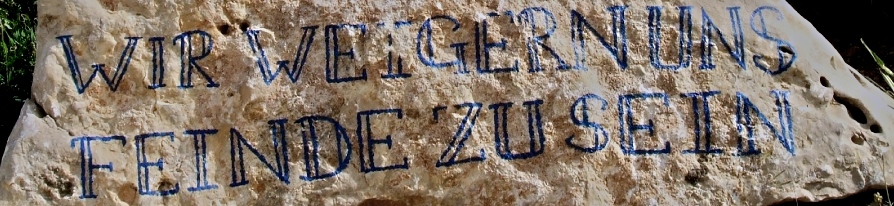 WIR WEIGERN UNS
FEINDE ZU SEIN